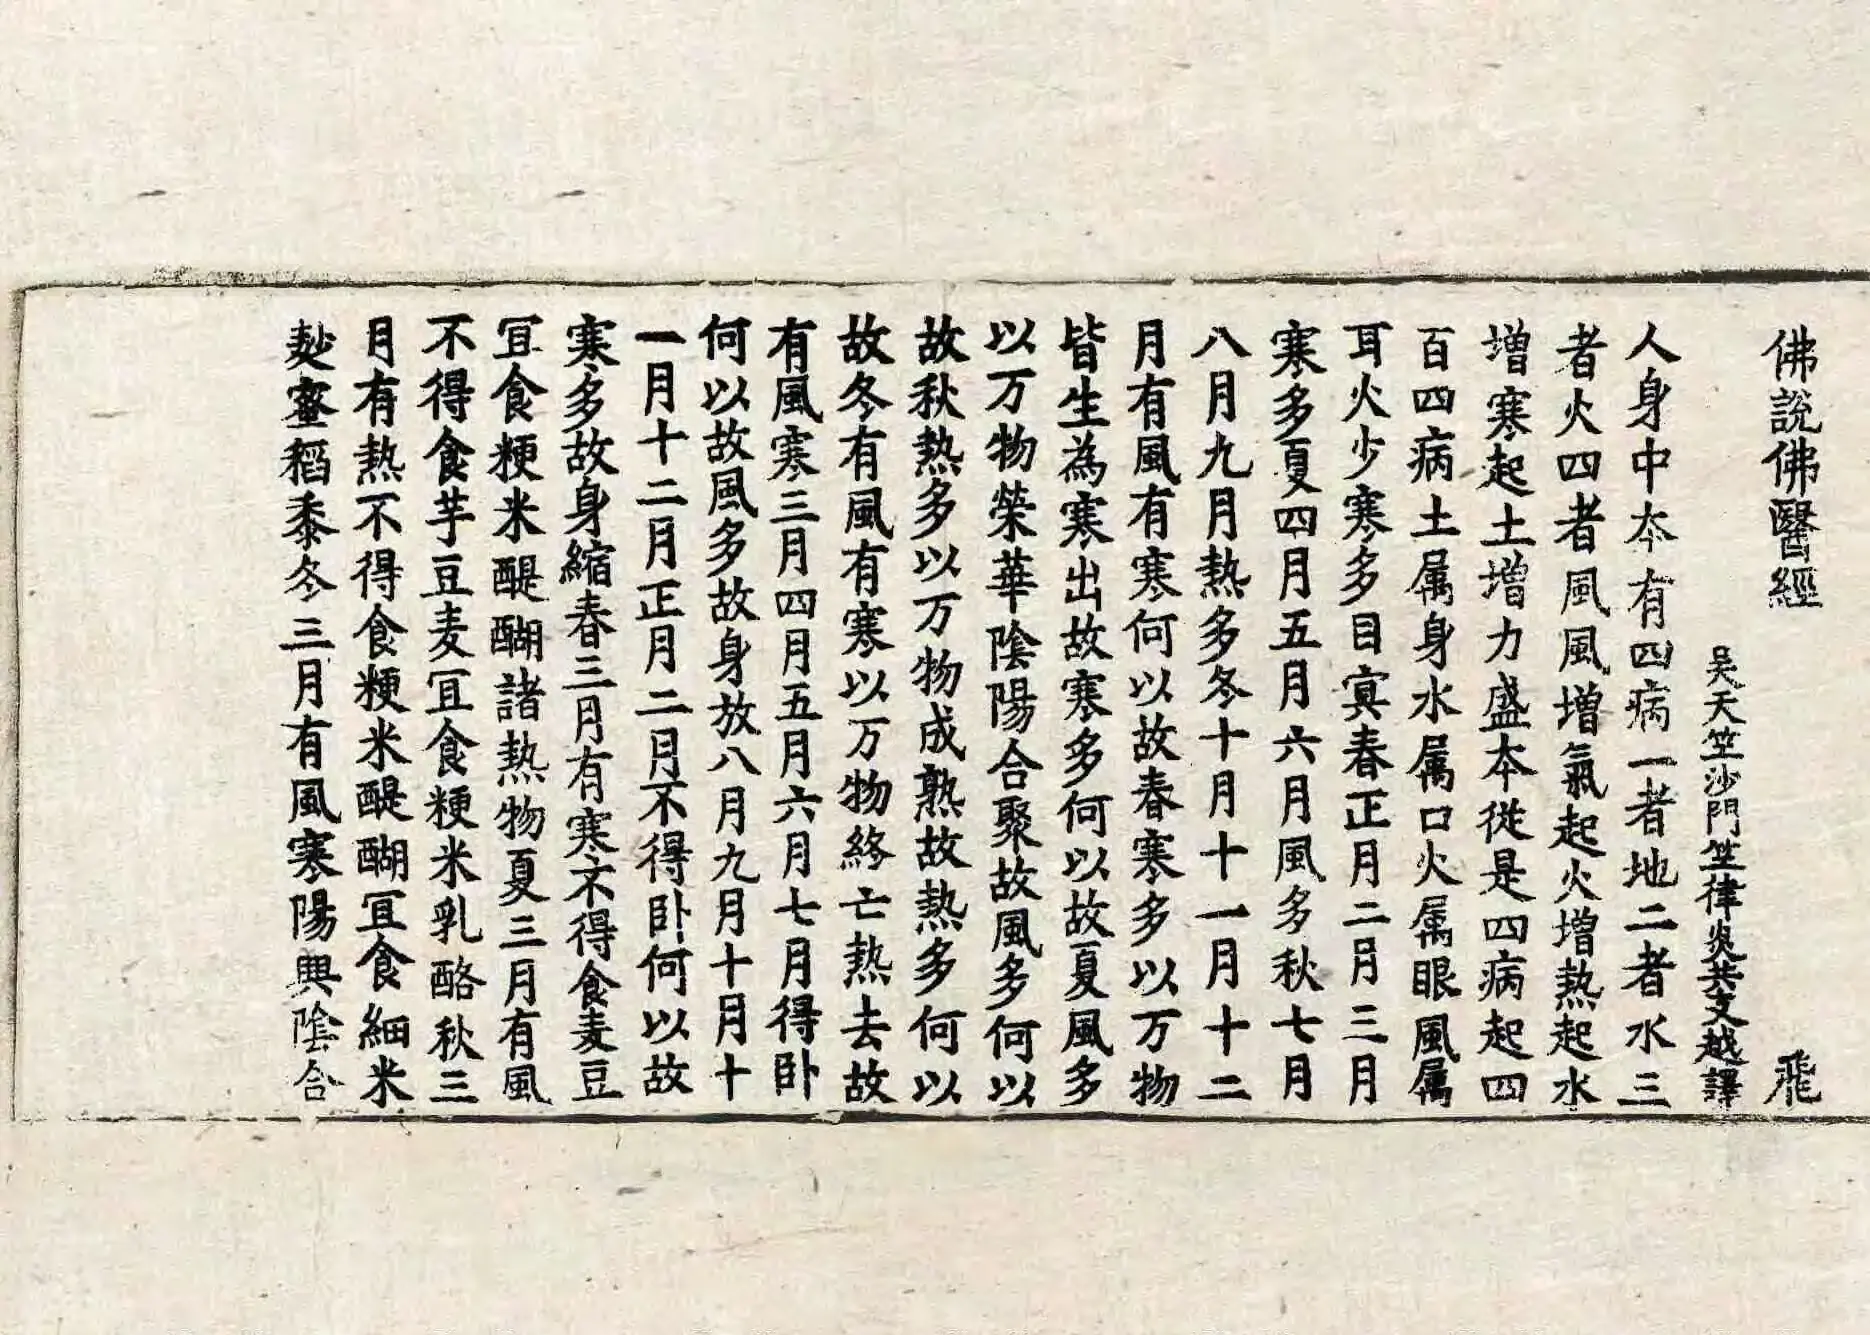 佛說佛醫經 飛
吳天竺沙門竺律炎共支越譯
人身中夲有四病一者地二者水三
者火四者風風增氣起火增熱起水
增寒起土增力盛夲從是四病起四
百四病土属身水属口火属眼風属
耳火少寒多目㝠春正月二月三月
寒多夏四月五月六月風多秋七月
八月九月熱多冬十月十一月十二
月有風有寒何以故春寒多以万物
皆生為寒出故寒多何以故夏風多
以万物榮華陰陽合聚故風多何以
故秋熱多以万物成熟故熱多何以
故冬有風有寒以万物終亡熱去故
有風寒三月四月五月六月七月得卧
何以故風多故身放八月九月十月十
一月十二月正月二月不得卧何以故
寒多故身縮春三月有寒不得食麦豆
冝食粳米醍醐諸熱物夏三月有風
不得食芋豆麦冝食粳米乳酪秋三
月有熱不得食粳米醍醐冝食細米
麨蜜稻黍冬三月有風寒陽興陰合